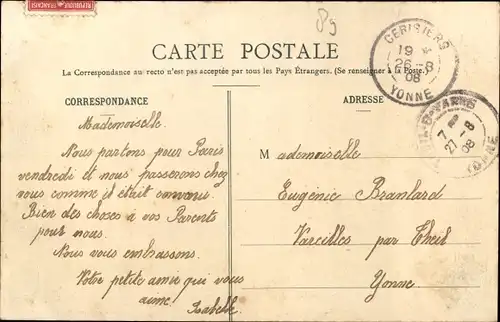 RÉPUBLIQUE FRANÇAISE
89
CARTE POSTALE
La Correspondance au recto n'est pas acceptée par tous les Pays Étrangers. (Se renseigner à la Poste.)
CERISIERS
19
26-8
08
YONNE
CORRESPONDANCE
ADRESSE
7
27-8
08
YONNE
Mademoiselle.
Nous partons pour Paris
vendredi et nous passerons chez
vous comme il était convenu.
Bien des choses à vos Parents
pour nous.
Nous vous embrassons.
Votre petite amie qui vous
aime. Isabelle
Mademoiselle
Eugénie Branlard
Vareilles par Theil
Yonne